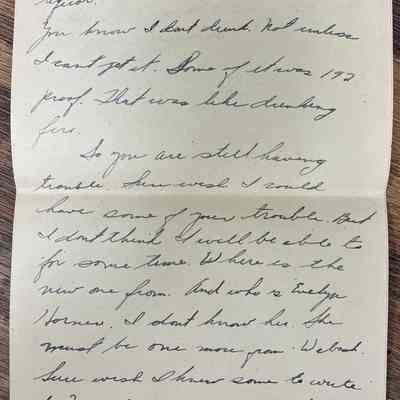 liquor.
You know I dont drink. Not unless
I cant get it. Some of it was 192
proof. That was like drinking
fire.
So you are still having
trouble. Sure wish I could
have some of your trouble. But
I dont think I will be able to
for some time. Where is the
new one from. And who is Evelyn
I dont know her. She
must be one more from Wabash.
Sure wish I knew some to write
to